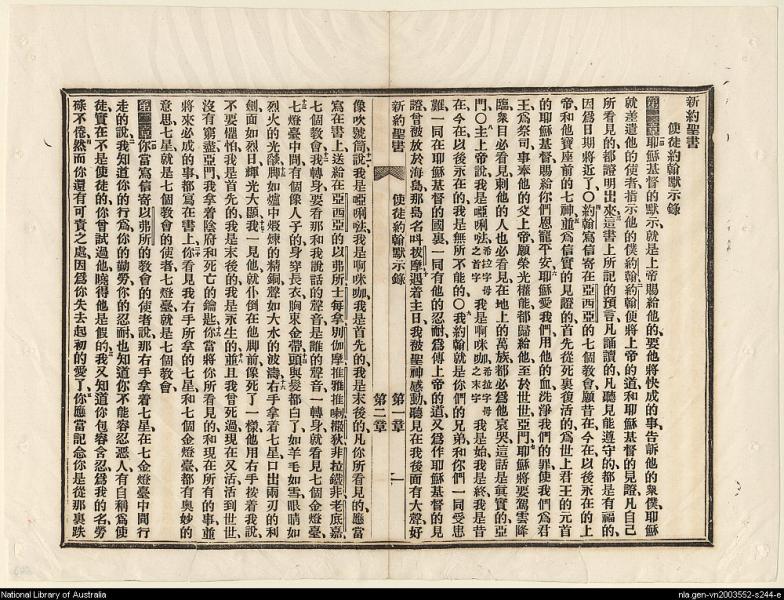 新約聖書
使徒約翰默示錄
第一章耶穌基督的默示就是上帝賜給他的要他將快成的事告訴他的衆僕耶穌
就差遣他的使者指示他的僕約翰約翰使將上帝的道和耶穌基督的見證凡自己
所看見的都證明出來這書上所記的預言凡誦讀的凡聽見能遵守的都是有福的
因爲日期將近了〇約翰寫信寄在亞西亞的七個教會願昔在今在以後永在的上
帝和他寶座前的七神並爲信實的見證的首先從死裏復活的爲世上君王的元首
的耶穌基督賜給你們恩寵平安耶穌愛我們用他的血洗淨我們的罪使我們爲君
王爲祭司事奉他的父上帝願榮光權能都歸給他至於世世亞門耶穌將要駕雲降
臨衆目必看見刺他的人也必看見在地上的萬族都必爲他哀哭這話是眞實的亞
門〇主上帝說我是啞唎㕸希拉字母之首字我是啊咪咖希拉字母之末字我是始我是終我是昔
在今在以後永在的我是無所不能的〇我約翰就是你們的兄弟和你們一同受患
難一同在耶穌基督的國裏一同有他的忍耐爲傳上帝的道又爲作耶穌基督的見
證曾被放於海島那島名叫拔摩遇着主日我被聖神感動聽見在我後面有大聲好
新約聖書 使徒約翰默示錄 第一章 第二章 一
像吹號筒說我是啞唎㕸我是啊咪咖我是首先的我是末後的凡你所看見的應當
寫在書上送給在亞西亞的以弗所士每拿別伽摩推雅推喇撒狄非拉鐵非老底嘉
七個教會我轉身要看那和我說話的聲音是誰的聲音一轉身就看見七個金燈臺
七燈臺中間有一個像人子的身穿長衣胸束金帶頭與髮都白了如羊毛如雪眼睛如
烈火的光燄脚如爐中煆煉的精銅聲如大水的波濤右手拿着七星口出兩刃的利
劍面如烈日輝光大顯我一見他就仆倒在他脚前像死了一樣他用右手按着我說
不要懼怕我是首先的我是末後的我是永生的並且我曾死過現在又活活到世世
沒有窮盡亞門我拿着陰府和死亡的鑰匙你當將你所看見的和現在所有的事並
將來必成的事都寫在書上你看見我右手所拿的七星和七個金燈臺都有奧妙的
意思七星就是七個教會的使者七燈臺就是七個教會
第二章你當寫信寄以弗所的教會的使者說那右手拿着七星在七金燈臺中間行
走的說我知道你的行爲你的勤勞你的忍耐也知道你不能容忍惡人有自稱爲使
徒實在不是使徒的你曾試過他曉得他是假的我又知道你包容含忍爲我的名勞
碌不倦然而你還有可責之處因爲你失去起初的愛了你應當記念你是從那裏跌
National Library of Australia
nla.gen-vn2003552-s244-e